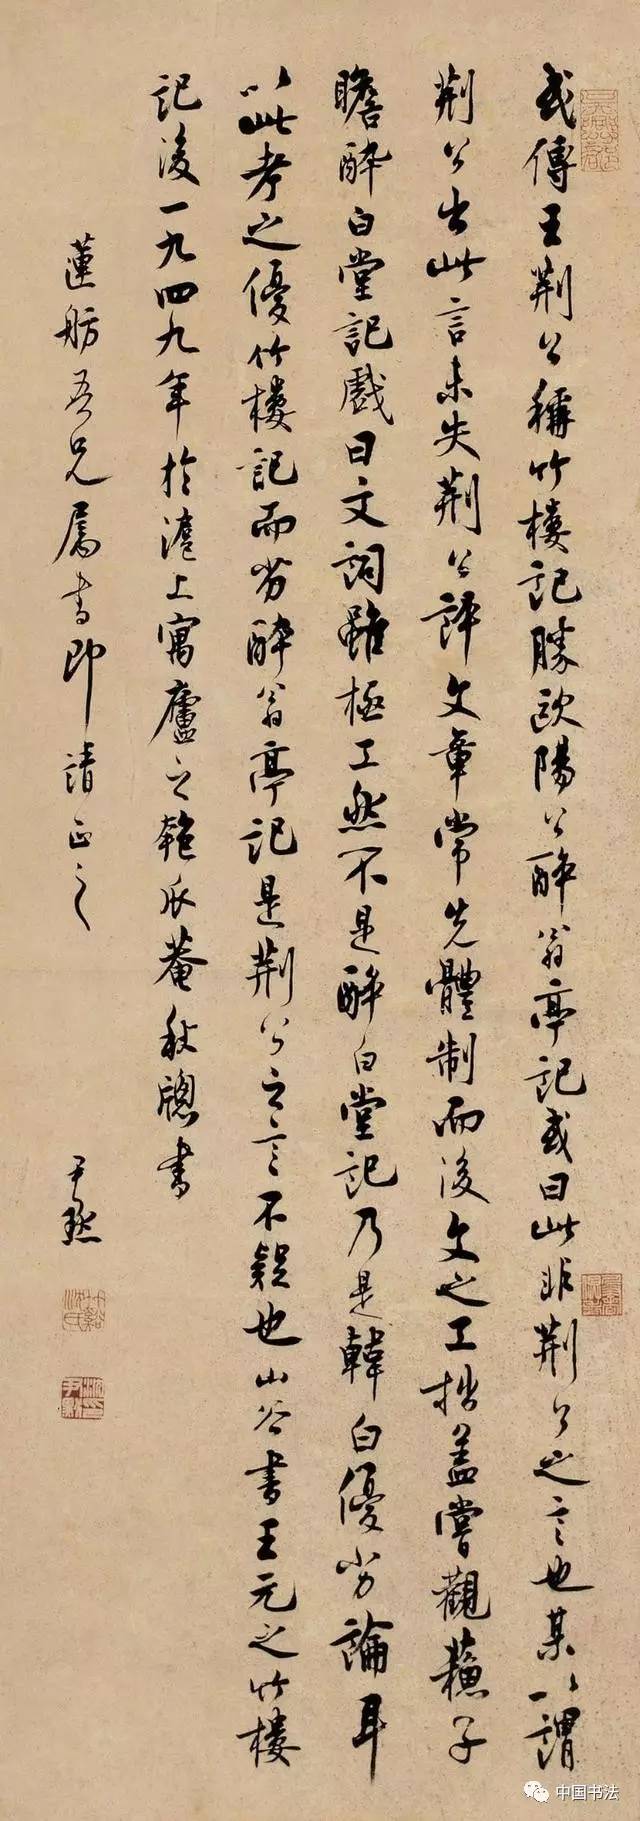 或傳王荆公稱竹樓記勝歐陽公醉翁亭記或曰此非荆公之言也某以謂
荆公出此言未失荆公評文章常先體制而後文之工拙蓋嘗觀蘇子
瞻醉白堂記戲曰文詞雖極工然不是醉白堂記乃是韓白優劣論耳
以此考之優竹樓記而劣醉翁亭記是荆公之言不疑也山谷書王元之竹樓
記後一九四九年於滬上寓廬之匏瓜菴秋窗書
蓮舫吾兄屬書即請正之
尹默
竹谿沈氏
沈尹默印
中国书法